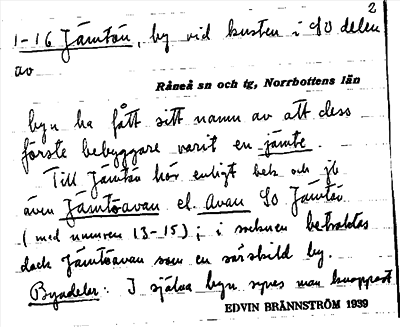 2
1-16 Jämtön, by vid kusten i SO delen
av
Råneå sn och tg, Norrbottens län
byn ha fått sitt namn av att dess
förste bebyggare varit en jämte.
Till Jämtön hör enligt bek och jb
även Jämtöavan el. Avan SO Jämtön
(med numren 13-15); i socknen betraktas
dock Jämtöavan som en särskild by.
Byadelar: I själva byn synes man knappast
EDVIN BRÄNNSTRÖM 1939